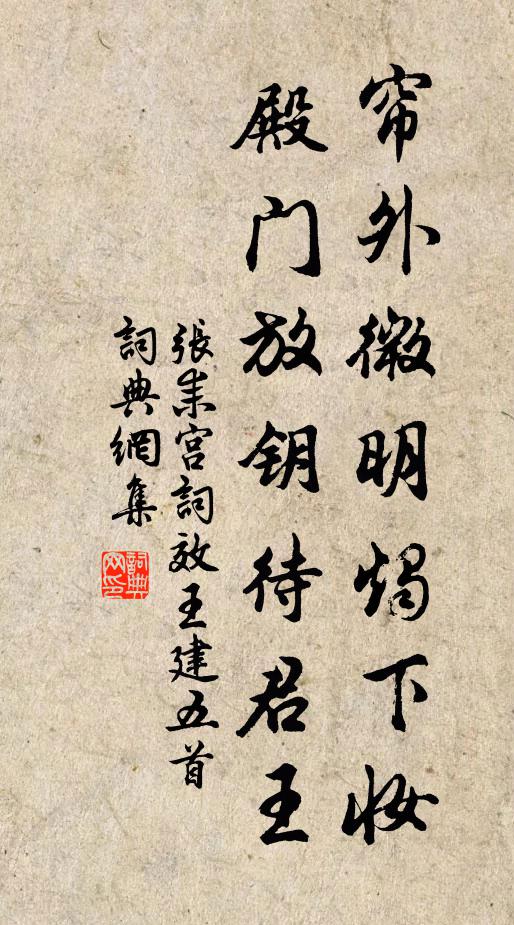 帘外微明烛下妆
殿门放钥待君王
張耒宫詞效王建五首
詞典網集
詞典网印